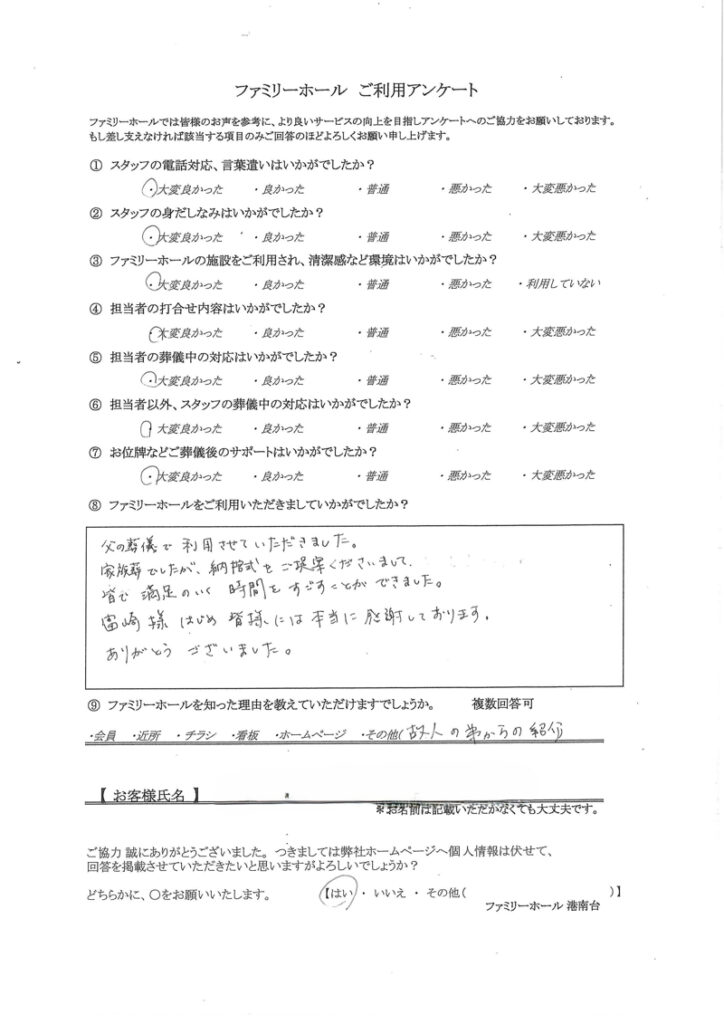 ファミリーホール ご利用アンケート
ファミリーホールでは皆様のお声を参考に、より良いサービスの向上を目指しアンケートへのご協力をお願いしております。
もし差し支えなければ該当する項目のみご回答のほどよろしくお願い申し上げます。
① スタッフの電話対応、言葉遣いはいかがでしたか？
・大変良かった ・良かった ・普通 ・悪かった ・大変悪かった
② スタッフの身だしなみはいかがでしたか？
・大変良かった ・良かった ・普通 ・悪かった ・大変悪かった
③ ファミリーホールの施設をご利用され、清潔感など環境はいかがでしたか？
・大変良かった ・良かった ・普通 ・悪かった ・利用していない
④ 担当者の打合せ内容はいかがでしたか？
・大変良かった ・良かった ・普通 ・悪かった ・大変悪かった
⑤ 担当者の葬儀中の対応はいかがでしたか？
・大変良かった ・良かった ・普通 ・悪かった ・大変悪かった
⑥ 担当者以外、スタッフの葬儀中の対応はいかがでしたか？
・大変良かった ・良かった ・普通 ・悪かった ・大変悪かった
⑦ お位牌などご葬儀後のサポートはいかがでしたか？
・大変良かった ・良かった ・普通 ・悪かった ・大変悪かった
⑧ ファミリーホールをご利用いただきましていかがでしたか？
父の葬儀で利用させていただきました。
家族葬でしたが、納棺式をご提案くださいまして、
皆で満足のいく時間をすごすことができました。
富崎様はじめ皆様には本当に感謝しております。
ありがとうございました。
⑨ ファミリーホールを知った理由を教えていただけますでしょうか。 複数回答可
・会員 ・近所 ・チラシ ・看板 ・ホームページ ・その他(故人の弟からの紹介)
【 お客様氏名 】
＊お名前は記載いただかなくても大丈夫です。
ご協力 誠にありがとうございました。つきましては弊社ホームページへ個人情報は伏せて、
回答を掲載させていただきたいと思いますがよろしいでしょうか？
どちらかに、○をお願いいたします。 【はい ・ いいえ ・ その他( )】
ファミリーホール 港南台